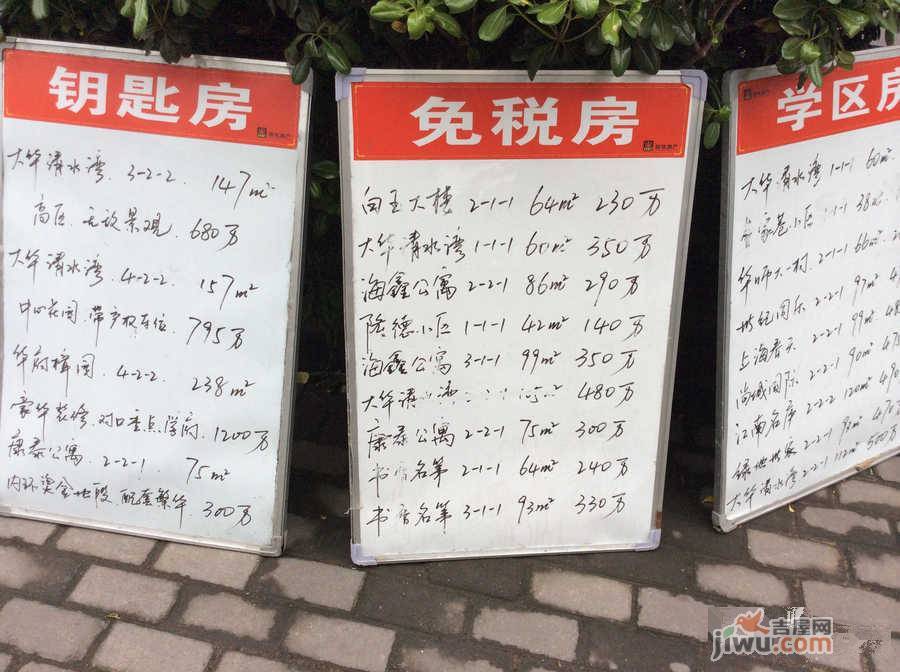 钥匙房
大华清水湾 3-2-2 147m²
高区 无敌景观 680万
大华清水湾 4-2-2 157m²
中心花园 带产权车位 795万
华府樟园 4-2-2 238m²
豪华装修 对口重点学府 1200万
康泰公寓 2-2-1 75m²
内环黄金地段 配套繁华 300万
免税房
白玉大楼 2-1-1 64m² 230万
大华清水湾 1-1-1 60m² 350万
海鑫公寓 2-2-1 86m² 290万
隆德小区 1-1-1 42m² 140万
海鑫公寓 3-1-1 99m² 350万
大华清水湾 480万
康泰公寓 2-2-1 75m² 300万
书香名第 2-1-1 64m² 240万
书香名第 3-1-1 93m² 330万
学区房
大华清水湾 1-1-1 60m²
家巷小区 1-1-1 38m²
华师大一村 2-1-1 66m²
世纪同乐 2-2-1 97m²
上海春天 2-2-1 99m²
尚城国际 2-2-1 90m² 475
江南名庐 2-2-2 120m² 490
绿地世家 2-2-1 470
大华清水湾 2-2-1 112m² 500万
吉屋网
jiwu.com